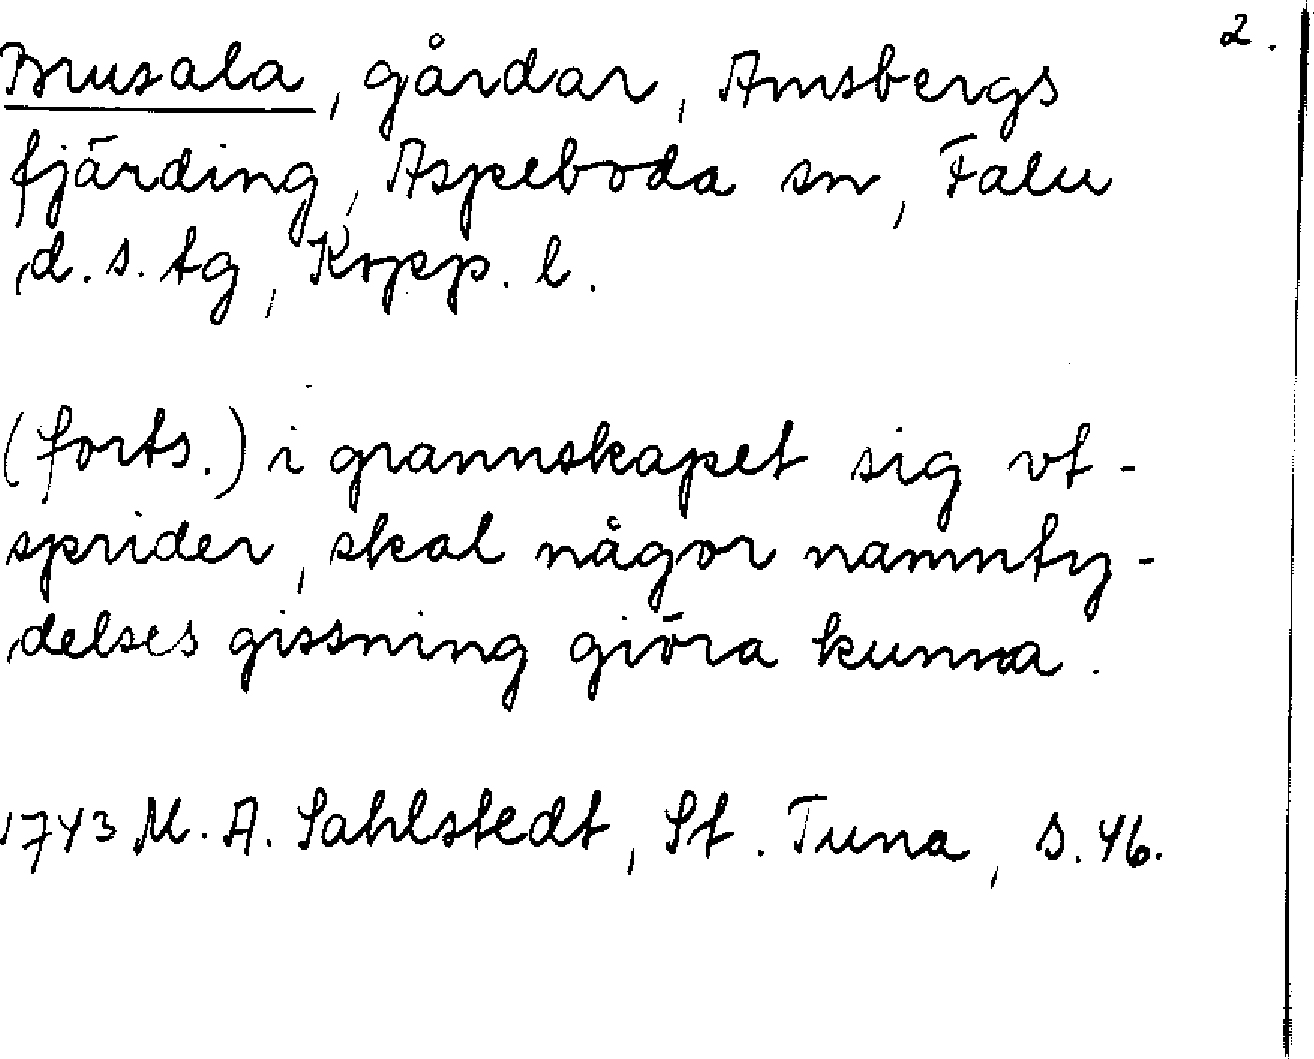 2.
Brusala, gårdar, Amsbergs
fjärding, Aspeboda sn, Falu
d. s. tg, Kopp. l.
(forts.) i grannskapet sig vt-
sprider, skal någor namnty-
delses gissning giöra kunna.
1743 M. A. Sahlstedt, St. Tuna, s. 46.